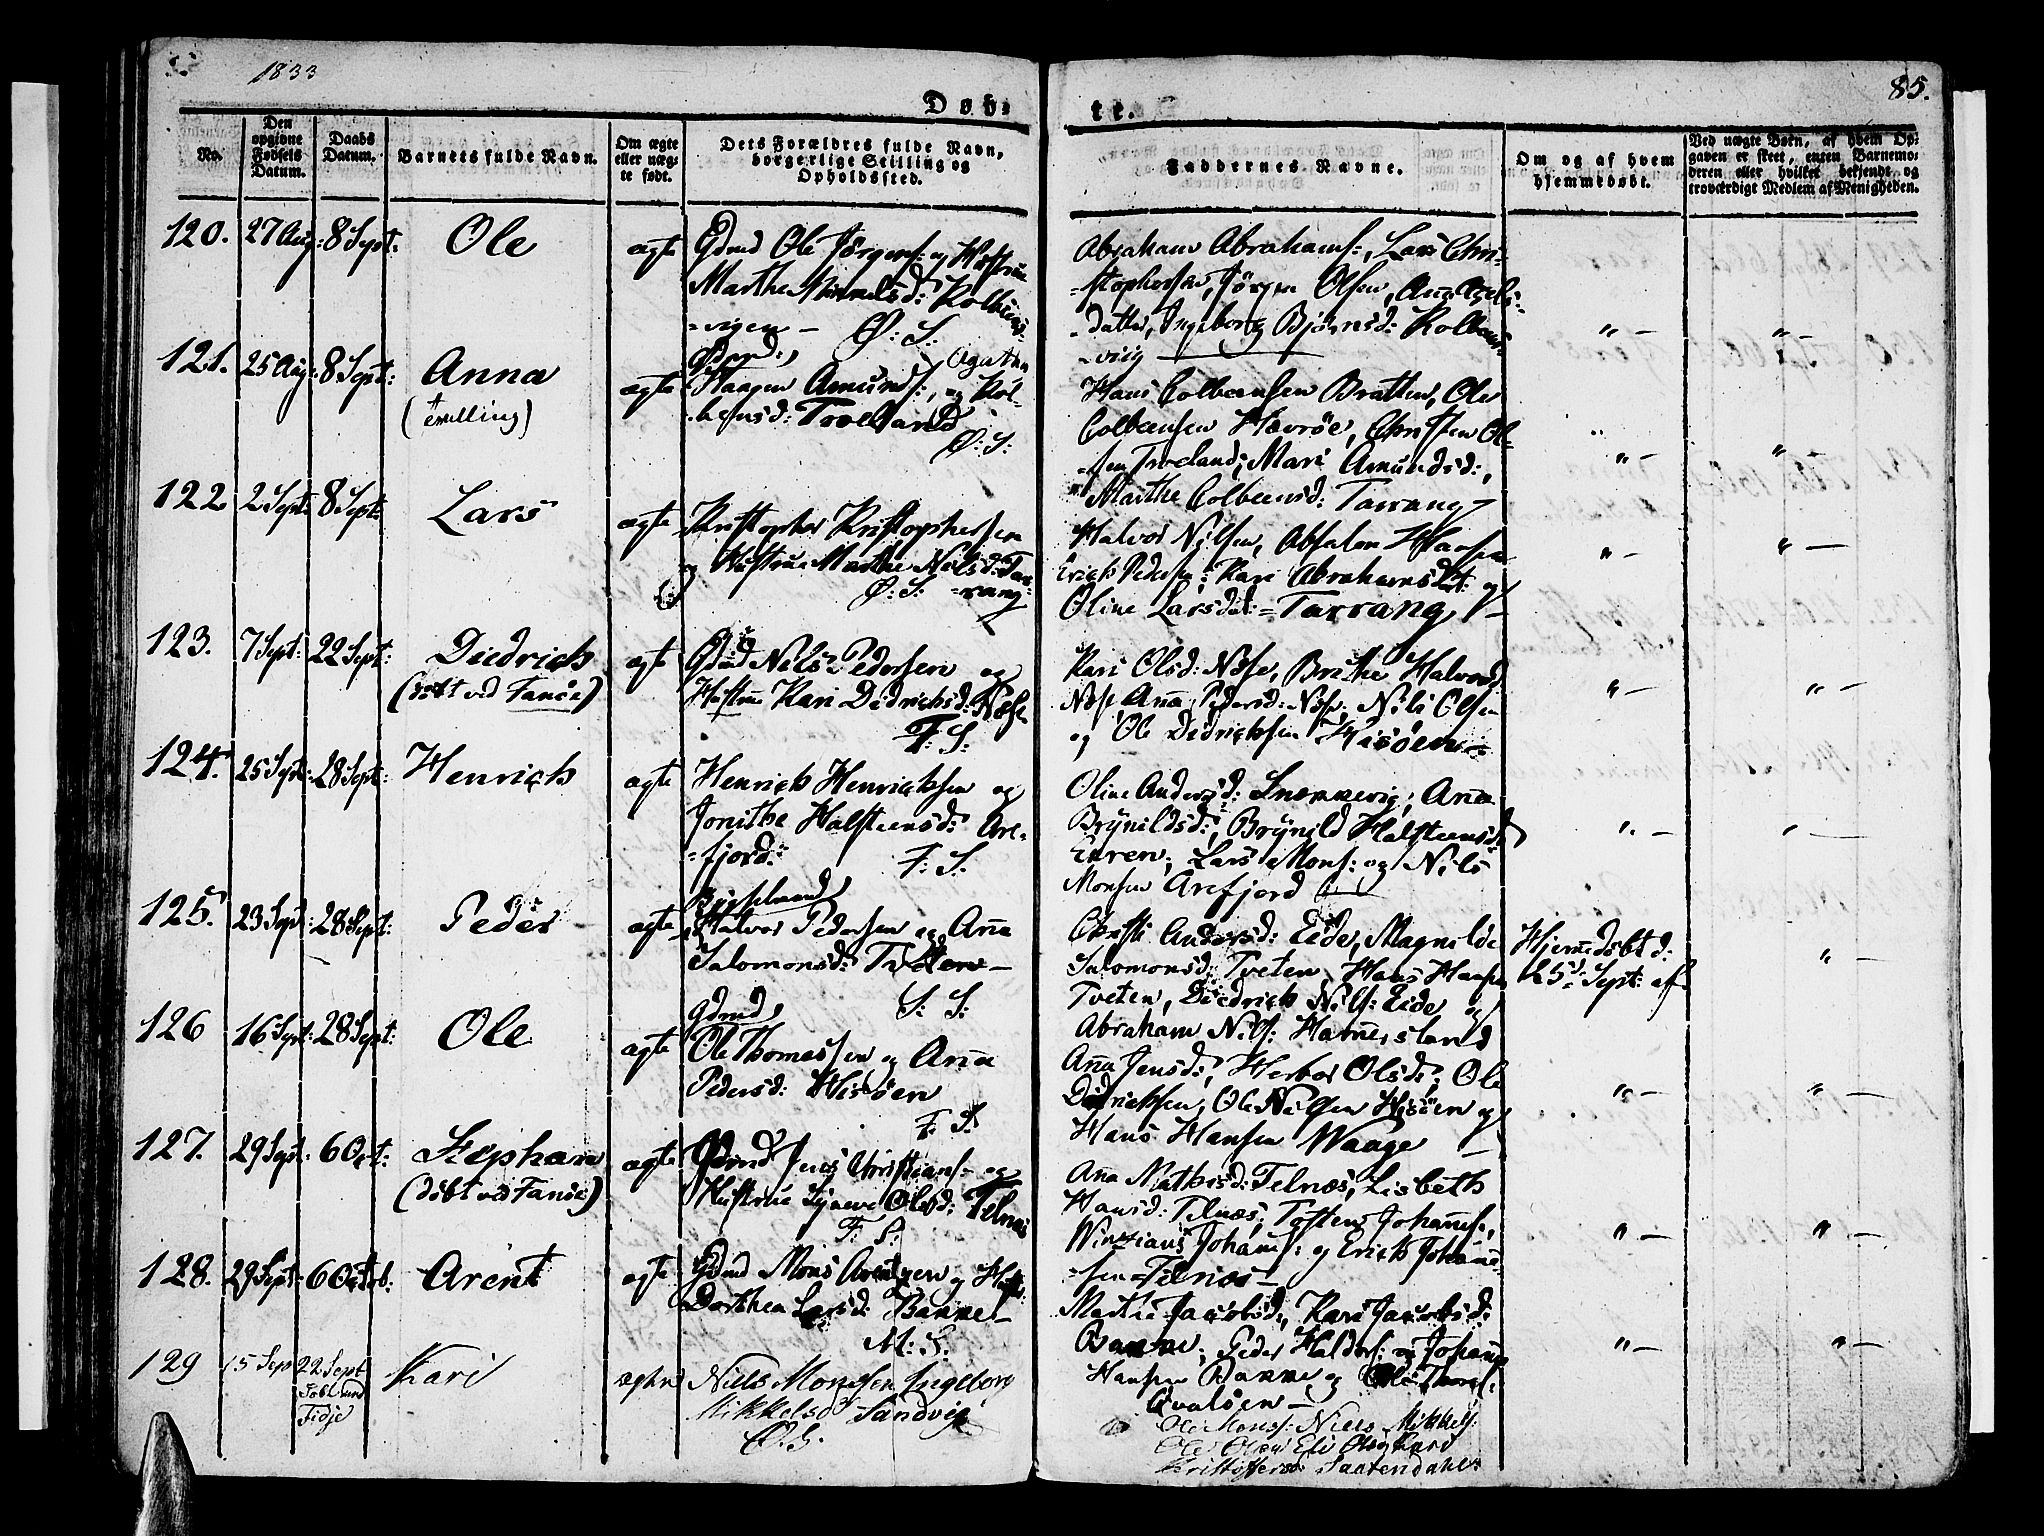 1833
85.
Døb-
te.
No.
Den
opgivne
Fødsels
Datum.
Daabs
Datum.
Barnets fulde Navn.
Om ægte
eller uæg-
te født.
Dets Forældres fulde Navn,
borgerlige Stilling og
Opholdssted.
Faddernes Navne.
Om og af hvem
hjemmedøbt.
Ved uægte Børn, af hvem Op-
gaven er skeet, enten Barnemo-
deren eller hvilket bekjendt og
troværdigt Medlem af Menigheden.
120. 27 Aug: 8 Sept: Ole ægte Gdmd Ole Jörgens: og Hustrue
Marthe d: Kolbens-
=vigen - Ø: S:
Abraham Abrahams:, Lars Chri-
=stophersen, Jörgen Olsen, Anna
=datter, Ingeborg Björnsd: Kolbeens-
=viig
" - " -
121. 25 Aug: 8 Sept: Anna
(tvilling)
ægte Haagen Amunds:, og Agatha Kol-
beensd: Troeland
Ø: S:
Hans Colbeensen Bratten, Ole
Colbeensen Hevröe, Christen Ol-
=sen Troeland, Mari Amundsd:,
Marthe Colbeensd: Tarrang
" - " -
122 2 Sept: 8 Sept: Lars ægte Kristopher Kristophersen
og Hustrue Marthe Nilsd: Tar-
Ø: S: =rang
Halvor Nilsen, Absalon Hansen
Erich Pedersen, Kari Abrahamsdt: og
Oline Larsdt: = Tarrang
" - " -
123. 7 Sept: 22 Sept: Diedrich
(döbt ved Fanöe)
ægte Gdmd Nils Pedersen og
Hustrue Kari Didrichsd: Næse
F: S:
Kari Olsd: Næse, Brithe Halvorsd:
Næse Anna Pedersd: Næse, Nils Olsen
og Ole Didrichsen Hisöen -
" - " -
124. 25 Sept: 28 Sept: Henrich ægte Henrich Henrichsen og
Jonithe Halsteensd: Are-
=fjord: F: S:
Oline Andersd: Snekkevig, Anna
Brynildsd:, Brynild Halsteens:
Euren, Lars Mons: og Nils
Monsen Arefjord
" - " -
125. 23 Sept: 28 Sept: Peder ægte Halvor Pedersen og Anna
Salomonsd: Tveten -
S: S:
Christi Andersd: Eide, Magnilde
Salomonsd: Tveten, Hans Hansen
Tveten, Diedrich Nils: Eide og
Abraham Nils: Hammersland
Hjemedöbt d:
25d: Sept: af
" -
126 16 Sept: 28 Sept: Ole ægte Gdmd,
Ole Thomassen og Anna
Pedersd: Hisöen
F: S:
Anna Jensd:, Herbor Olsd:, Ole
Didrichsen, Ole Nilsen Hisöen og
Hans Hansen Waage
" - " -
127. 29 Sept: 6 Oct: Stephan
(döbt ved Fanöe)
ægte Gdmd Jens Christians: og
Hustrue Synneve Olsd: Telnæs
F: S:
Anna Mathisd: Telnæs, Lisbeth
Hansd: Telnæs, Tosten Johans:,
Johans: og Erich Johan-
=sen Telnæs -
" - " -
128. 29 Sept: 6 Octob: Arent ægte Gdmd Mons Arentsen og Hustr:
Dorthea Larsd: Bakke -
M: S:
Marthe Jacobsd:, Kari Jacobsd:
Bakke, Peder Haldors: og Johan
Hansen Bakke og Ole
Qvalöen -
" - " -
129 15 Sept 22 Sept
Kari ægte Niels Monsen Ingeborg
Mikkelsd Sandvig
Ø. S.
Ole Mons: Niels Mikkels:
Ole Olsen Eli Kari
Kristoffersd: Saatendahl: